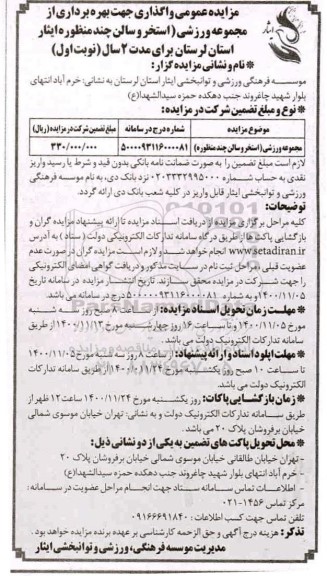 مزایده عمومی واگذاری جهت بهره برداری از
مجموعه ورزشی (استخر و سالن چند منظوره) ایثار
استان لرستان برای مدت ۲ سال (نوبت اول)
ایثار
* نام و نشانی مزایده گزار:
موسسه فرهنگی ورزشی و توانبخشی ایثار استان لرستان به نشانی: خرم آباد انتهای
بلوار شهید چاغروند جنب دهکده حمزه سیدالشهدا(ع)
* نوع و مبلغ تضمین شرکت در مزایده:
موضوع مزایده شماره درج در سامانه مبلغ تضمین شرکت در مزایده (ریال)
مجموعه ورزشی (استخر و سالن چند منظوره) ۵۰۰۰۰۹۳۱۱۶۰۰۰۰۸۱ ۳۳۰/۰۰۰/۰۰۰
لازم است مبلغ تضمین را به صورت ضمانت نامه بانکی بدون قید و شرط یا رسید واریز
نقدی به حساب شماره ۰۲۰۳۳۳۲۹۹۵۰۰۰ نزد بانک دی، به نام موسسه فرهنگی
ورزشی و توانبخشی ایثار قابل واریز در کلیه شعب بانک دی ارائه گردد.
توضیحات:
کلیه مراحل برگزاری مزایده از دریافت اسناد مزایده تا ارائه پیشنهاد مزایده گران و
بازگشایی پاکت ها از طریق درگاه سامانه تدارکات الکترونیکی دولت (ستاد) به آدرس
www.setadiran.ir انجام خواهد شد و لازم است مزایده گران در صورت عدم
عضویت قبلی، مراحل ثبت نام در سایت مذکور و دریافت گواهی امضای الکترونیکی
را جهت شرکت در مزایده محقق سازند. تاریخ انتشار مزایده در سامانه تاریخ
۱۴۰۰/۱۱/۰۵ و به شماره ۵۰۰۰۰۹۳۱۱۶۰۰۰۰۸۱ درج در سامانه می باشد.
* مهلت زمان تحویل اسناد مزایده: از ساعت ۸ صبح روز سه شنبه
مورخ ۱۴۰۰/۱۱/۰۵ و تا ساعت ۱۶ روز چهارشنبه مورخ ۱۴۰۰/۱۱/۱۳ از طریق
سامانه تدارکات الکترونیک دولت می باشد.
* مهلت اپلود اسناد و ارائه پیشنهاد: از ساعت ۸ روز سه شنبه مورخ ۱۴۰۰/۱۱/۰۵
تا ساعت ۱۰ صبح روز یکشنبه مورخ ۱۴۰۰/۱۱/۲۴ از طریق سامانه تدارکات
الکترونیک دولت می باشد.
* زمان بازگشایی پاکات: روز یکشنبه مورخ ۱۴۰۰/۱۱/۲۴ ساعت ۱۲ ظهر از
طریق سامانه تدارکات الکترونیک دولت و به نشانی: تهران خیابان موسوی شمالی
خیابان برفروشان پلاک ۲۰ می باشد.
* محل تحویل پاکت های تضمین به یکی از دو نشانی ذیل:
- تهران خیابان طالقانی خیابان موسوی شمالی خیابان برفروشان پلاک ۲۰
- خرم آباد انتهای بلوار شهید چاغروند جنب دهکده حمزه سیدالشهدا(ع)
- اطلاعات تماس سامانه ستاد جهت انجام مراحل عضویت در سامانه:
مرکز تماس ۱۴۵۶-۰۲۱
تلفن تماس جهت کسب اطلاعات: ۰۹۱۶۶۶۹۱۸۴۰
تذکر: هزینه درج آگهی و حق الزحمه کارشناسی بر عهده برنده مزایده خواهد بود.
مدیریت موسسه فرهنگی، ورزشی و توانبخشی ایثار